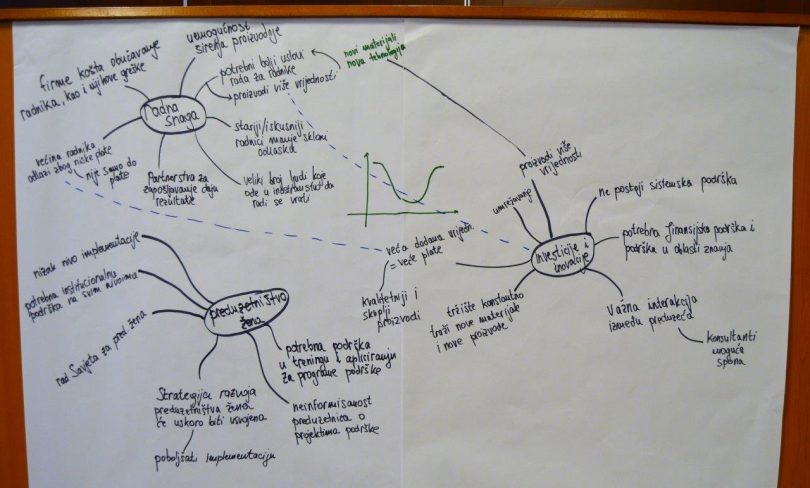 nemogućnost
širenja proizvodnje
firme košta obučavanje
radnika, kao i njihove greške
potrebni bolji uslovi
rada za radnike
proizvodi više vrijednosti
novi materijali
nova tehnologija
radna
snaga
stariji/iskusniji
radnici manje skloni
odlasku
većina radnika
odlazi zbog niske plate
nije samo do
plate
Partnerstva za
zapošljavanje daju
rezultate
veliki broj ljudi koje
ode u inostranstvo
radi se vrati
proizvodi više
vrijednosti
umrežavanje
ne postoji sistemska podrška
Investicije i
inovacije
potrebna finansijska podrška i
podrška u oblasti znanja
veća dodana vrijedn.
= veće plate
kvalitetniji i
skuplji
proizvodi
tržište konstantno
traži nove materijale
i nove proizvode
Važna interakcija
između preduzeća
konsultanti
moguća
spona
nizak nivo implementacije
potrebna institucionalna
podrška na svim nivoima
rad Savjeta za pred. žena
preduzetništvo
žena
potrebna podrška
u treningu i apliciranju
za programe podrške
Strategija razvoja
preduzetništva žena
će uskoro biti usvojena
poboljšati implementaciju
neinformisanost
preduzetnica o
projektima podrške